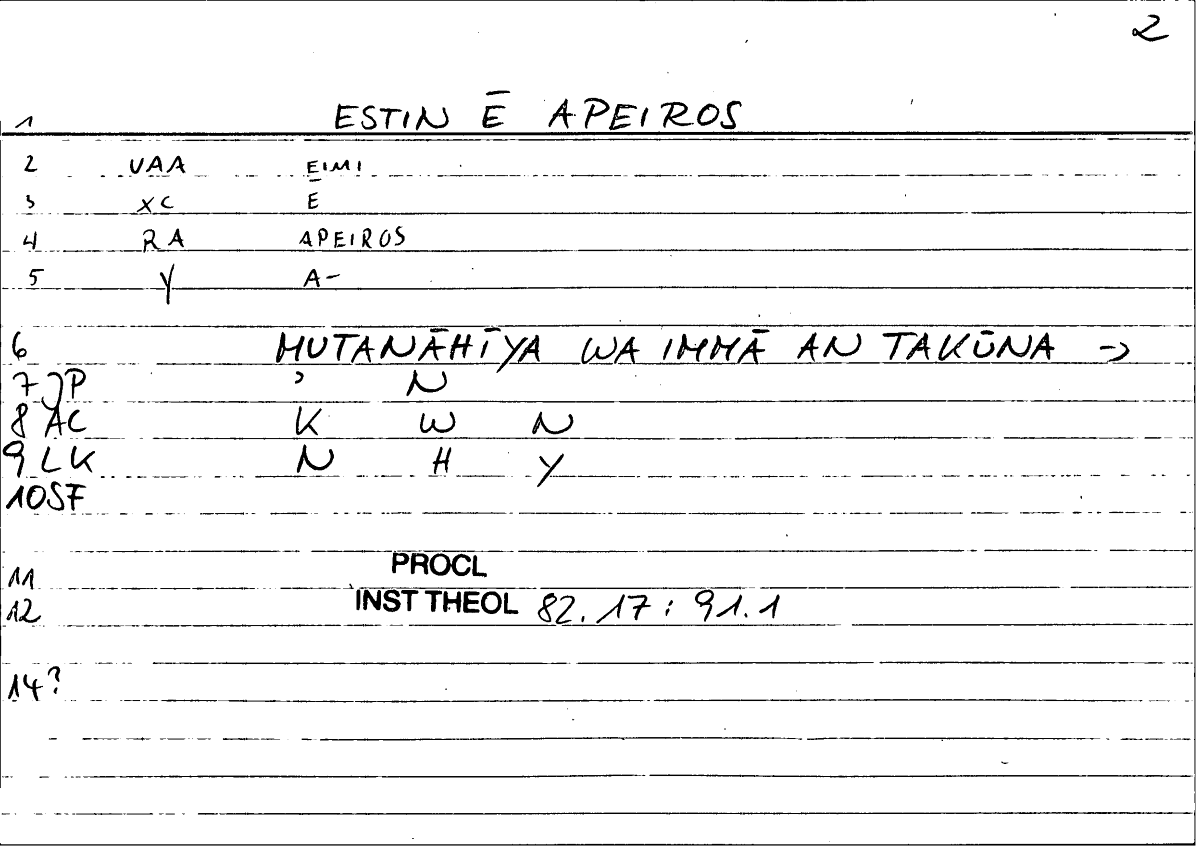 2
1 ESTIN Ē APEIROS
2 VAA EIMI
3 XC Ē
4 RA APEIROS
5 Y A-
6 MUTANĀHĪYA WA IMMĀ AN TAKŪNA →
7 JP ʾ N
8 AC K W N
9 LK N H Y
10 SF
11 PROCL
12 INST THEOL 82.17 : 91.1
14?